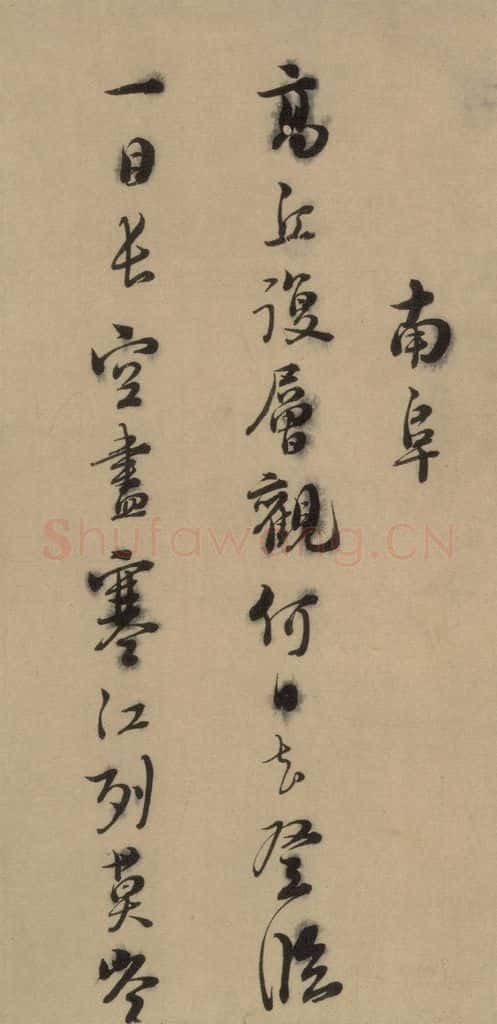 南阜
高丘復層觀何日去登臨
一目長空盡寒江列莫岑
Shufawang.CN